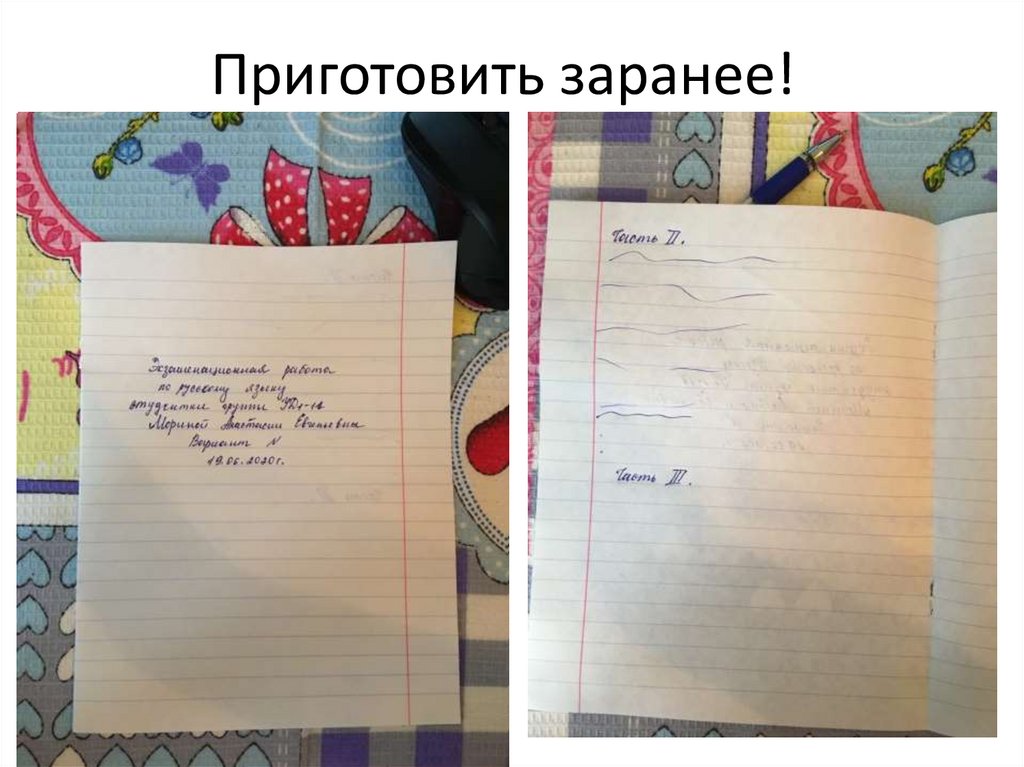 Приготовить заранее!
Экзаменационная работа
по русскому языку
студентки группы
Мориной Анастасии Евгеньевны
Вариант N
19.06.2020г.
Часть II.
Часть III.